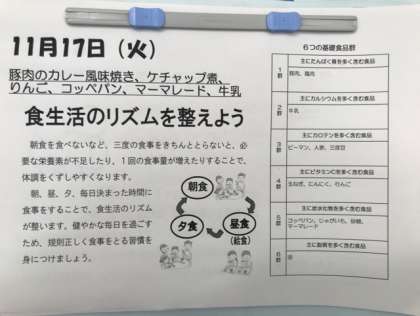 11月17日（火）
豚肉のカレー風味焼き、ケチャップ煮、
りんご、コッペパン、マーマレード、牛乳
食生活のリズムを整えよう
朝食を食べないなど、三度の食事をきちんととらないと、必
要な栄養素が不足したり、1回の食事量が増えたりすることで、
体調をくずしやすくなります。
朝、昼、夕、毎日決まった時間に
食事をすることで、食生活のリズム
が整います。健やかな毎日を過ごす
ため、規則正しく食事をとる習慣を
身につけましょう。
朝食
昼食
(給食)
夕食
6つの基礎食品群
主にたんぱく質を多く含む食品
1群
豚肉、鶏肉
主にカルシウムを多く含む食品
2群
牛乳
主にカロテンを多く含む食品
3群
ピーマン、人参、三度豆
主にビタミンCを多く含む食品
4群
玉ねぎ、にんにく、りんご
主に炭水化物を多く含む食品
5群
コッペパン、じゃがいも、砂糖、
マーマレード
主に脂質を多く含む食品
6群
油